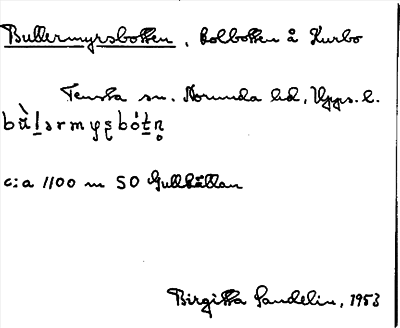 Bullermyrsbotten, kolbotten å Kurbo
Tensta sn. Norunda hd, Upps. l.
c:a 1100 m SO Gullhättan
Birgitta Sandelin, 1953